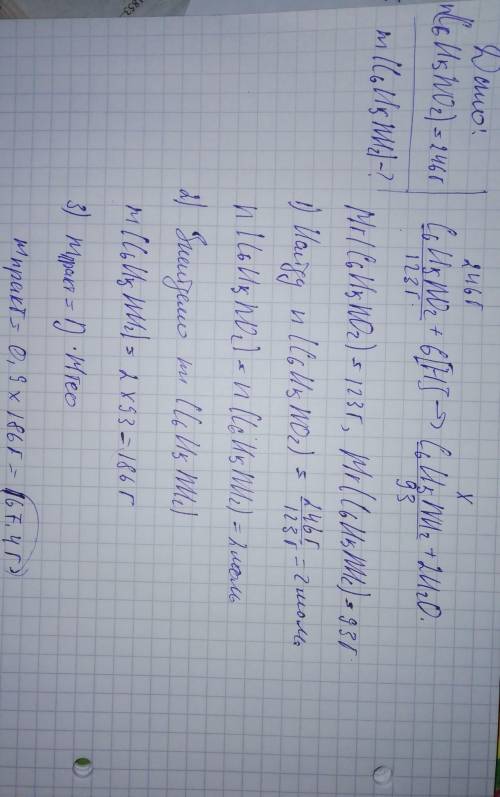 Дано:
m(C6H5NO2) = 246г
m(C6H5NH2) - ?
246г x
C6H5NO2 + 6[H] → C6H5NH2 + 2H2O.
123г 93
Mr(C6H5NO2) = 123г, Mr(C6H5NH2) = 93г.
1) Найду n(C6H5NO2) = 246г/123г = 2 моль
n(C6H5NO2) = n(C6H5NH2) = 2 моль
2) m(C6H5NH2)
m(C6H5NH2) = 2 x 93 = 186г
3) mпракт = η · mтео
mпракт = 0,9 x 186г = 167,4г